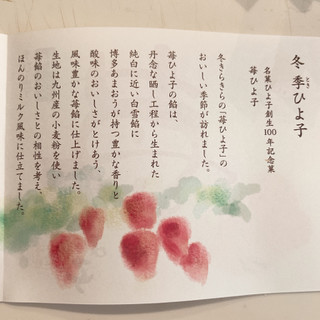 冬季ひよ子
とき
名菓ひよ子創生100年記念菓
苺ひよ子
冬きらきらの「苺ひよ子」の
おいしい季節が訪れました。
苺ひよ子の餡は、
丹念な晒し工程から生まれた
純白に近い白雪餡に
博多あまおうが持つ豊かな香りと
酸味のおいしさがとけあう、
風味豊かな苺餡に仕上げました。
生地は九州産の小麦粉を使い
苺餡のおいしさとの相性を考え、
ほんのりミルク風味に仕立てました。